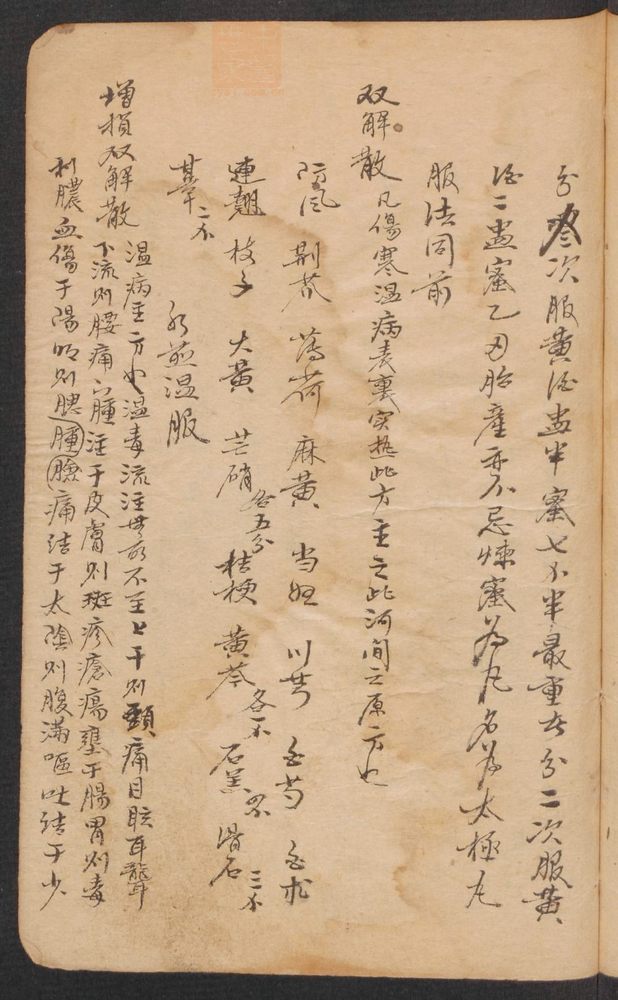 分叁次服黄酒盅半蜜七个半最重者分二次服黄
酒二盅蜜乙両胎產亦不忌煉蜜為丸名為太極丸
服法同前
双解散 凡傷寒温病表裏实热此方主之此河间之原方也
防風 荆芥 薄荷 麻黄 当归 川芎 白芍 白朮
連翹 枝子 大黄 芒硝各五分 桔梗 黄芩各不 石羔 滑石三不
甘草二不
水煎温服
增損双解散 温病主方也温毒流注無所不至上干则頭痛目眩耳聾
下流则腰痛足腫注于皮膚则斑疹瘡瘍壅于腸胃则毒
利膿血傷于陽明则腮腫臉痛结于太陰则腹滿嘔吐结于少